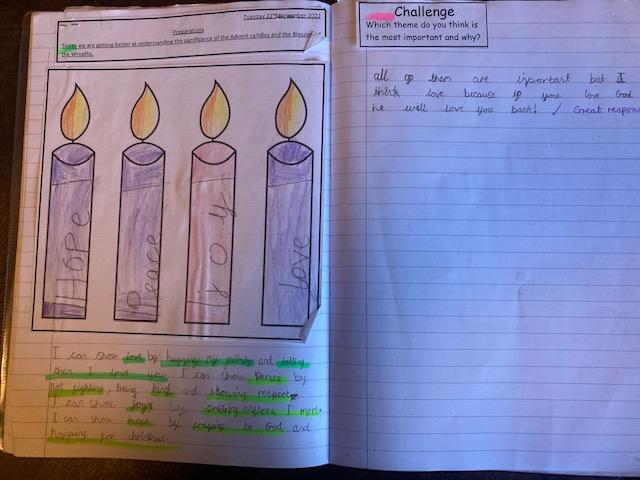 Tuesday 22nd November 2022
Preparations
Today we are getting better at understanding the significance of the Advent candles and the Blessing
the Wreaths.
Hope
Peace
joy
love
I can show love by hugging my and telling
them I love you. I can show Peace by
not fighting, being kind and showing respect
I can show by smileing anyone I meet.
I can show hope by praying to God and
hopping for christmas.
Challenge
Which theme do you think is
the most important and why?
all of them are ipportant but I
think love because if you love God
he will love you back! Great respon